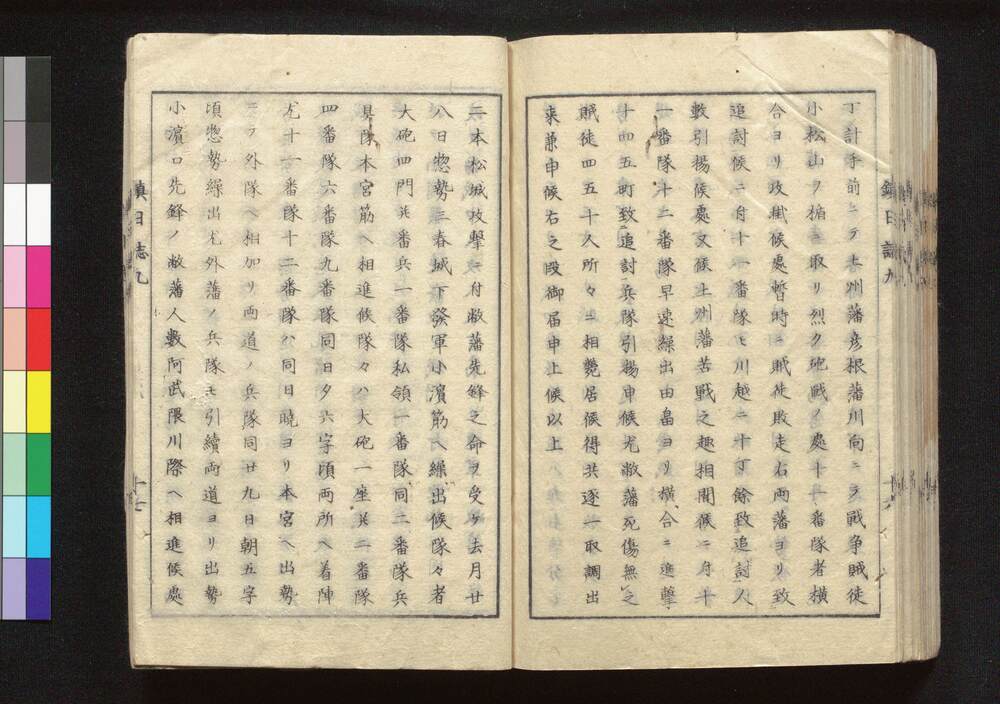 丁計手前ニテ土州藩彦根藩川向ニテ戰争賊徒
小松山ヲ楯ニ取リ烈ク砲戰ノ處十一番隊者横
合ヨリ攻掛候處暫時ニ賊徒敗走右両藩ヨリ致
追討候ニ付十一番隊モ川越ニ十丁餘致追討人
數引揚候處又候土州藩苦戰之趣相聞候ニ付十
一番隊十二番隊早速繰出由畠ヨリ横合ニ進撃
十四五町致追討兵隊引揚申候尤敝藩死傷無之
賊徒四五十人所々ニ相斃居候得共逐一取調出
来兼申候右之段御届申上候以上
鎮日誌九
二本松城攻撃ニ付敝藩先鋒之命ヲ受ケ去月廿
八日惣勢三春城下發軍小濱筋ヘ繰出候隊々者
大砲四門并番兵一番隊私領一番隊同二番隊兵
具隊本宮筋ヘ相進候隊々ハ大砲一座并二番隊
四番隊六番隊九番隊同日夕六字頃両所ヘ着陣
尤十一番隊十二番隊ハ同日曉ヨリ本宮ヘ出勢
ニテ外隊ヘ相加リ両道ノ兵隊同廿九日朝五字
頃惣勢繰出尤外藩ノ兵隊モ引續両道ヨリ出勢
小濱口先鋒ノ敝藩人數阿武隈川際ヘ相進候處
鎮日誌九